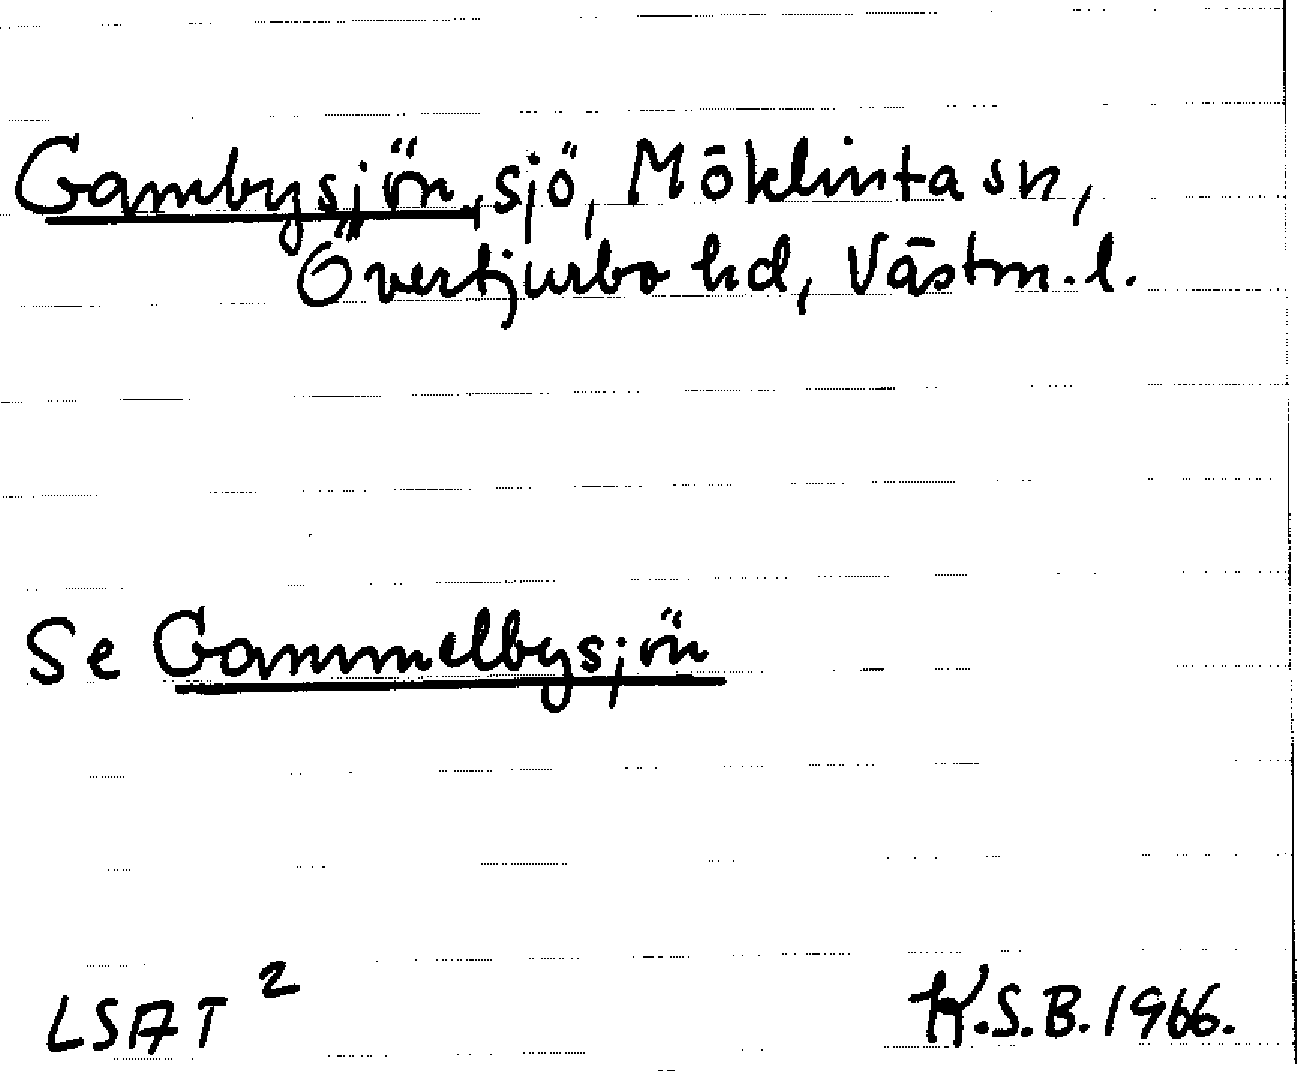 Gambysjön, sjö, Möklinta sn,
Övertjurbo hd, Västm. l.
Se Gammelbysjön
LSAT 2
K.S.B. 1966.